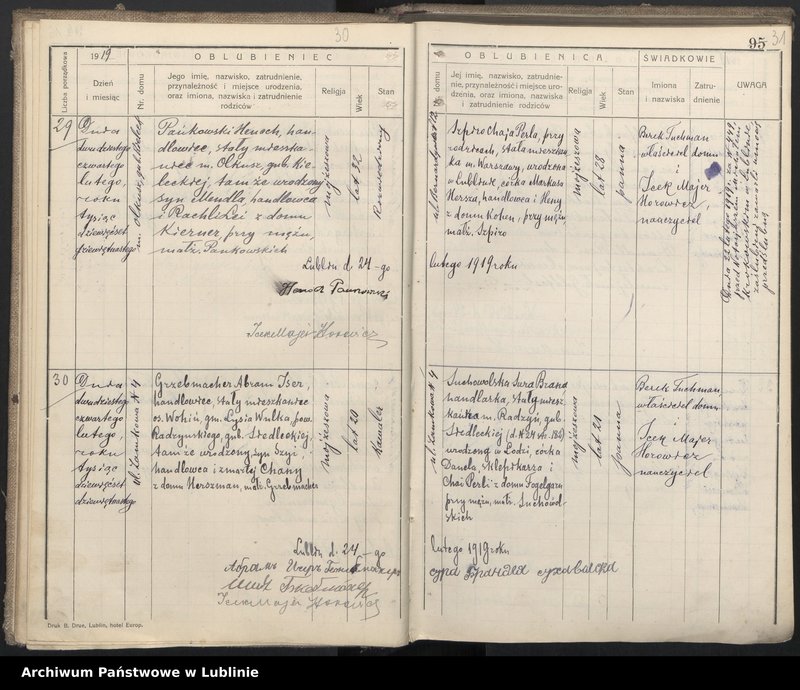 30
1919
OBLUBIENIEC
Liczba porządkowa
Dzień
i miesiąc
Nr. domu
Jego imię, nazwisko, zatrudnienie,
przynależność i miejsce urodzenia,
oraz imiona, nazwiska i zatrudnienie
rodziców
Religja
Wiek
Stan
29
Dnia
dwudziestego
czwartego
lutego,
roku
tysiąc
dziewięćset
dziewiętnastego
m. Olkusz, gub. Kielecka
Pańkowski Henoch, han-
dlowiec, stały mieszka-
niec m. Olkusz, gub. Kie-
leckiej, tamże urodzony
syn Mendla, handlowca
i Rachli
z domu
Kierner, przy mężu,
małż. Pańkowskich
mojżeszowa
lat 32
Lublin d. 24-go
Henoch Pankowski
Icek Majer Horowicz
30
Dnia
dwudziestego
czwartego
lutego,
roku
tysiąc
dziewięćset
dziewiętnastego
ul. Zamkowa N 4
Grzebmacher Abram Iser,
handlowiec, stały mieszkaniec
os. Wohiń, gm. Lysia Wulka, pow.
Radzyńskiego, gub. Siedleckiej,
tamże urodzony syn
handlowca i zmarłej Chany
z domu Herszman, małż. Grzebmacher
mojżeszowa
lat 20
kawaler
Lublin d. 24-go
Icek Majer Horowicz
Druk B. Drue, Lublin, hotel Europ.
95
31
OBLUBIENICA
ŚWIADKOWIE
Nr. domu
Jej imię, nazwisko, zatrudnie-
nie, przynależność i miejsce uro-
dzenia, oraz imiona, nazwiska
i zatrudnienie rodziców
Religja
Wiek
Stan
Imiona
i nazwiska
Zatru-
dnienie
UWAGA
Szpiro Chaja Perla, przy
rodzicach, stała mieszkan-
ka m. Warszawy, urodzona
w Lublinie, córka Markusa
Hersza, handlowca i Heny
z domu Kohn, przy mężu,
małż. Szpiro
mojżeszowa
lat 28
panna
Berek Tuchman
właściciel domu
i
Icek Majer
Horowicz,
nauczyciel
lutego 1919 roku
ul. Zamkowa N 4
Suchowolska Sura Brana
handlarka, stały miesz-
kanka m. Radzyń, gub.
Siedleckiej
urodzoną w Łodzi, córka
Daniela, sklepikarza i
Chai Perli z domu Fogelgarn
przy mężu, małż. Suchowol-
skich
mojżeszowa
lat 21
panna
Berek Tuchman,
właściciel domu
i
Icek Majer
Horowicz
nauczyciel
lutego 1919 roku
Archiwum Państwowe w Lublinie